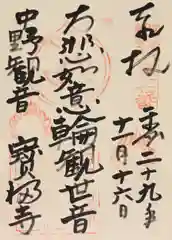 奉拝
二十九年
十月十六日
大悲如意輪観世音
中野観音
寳福寺